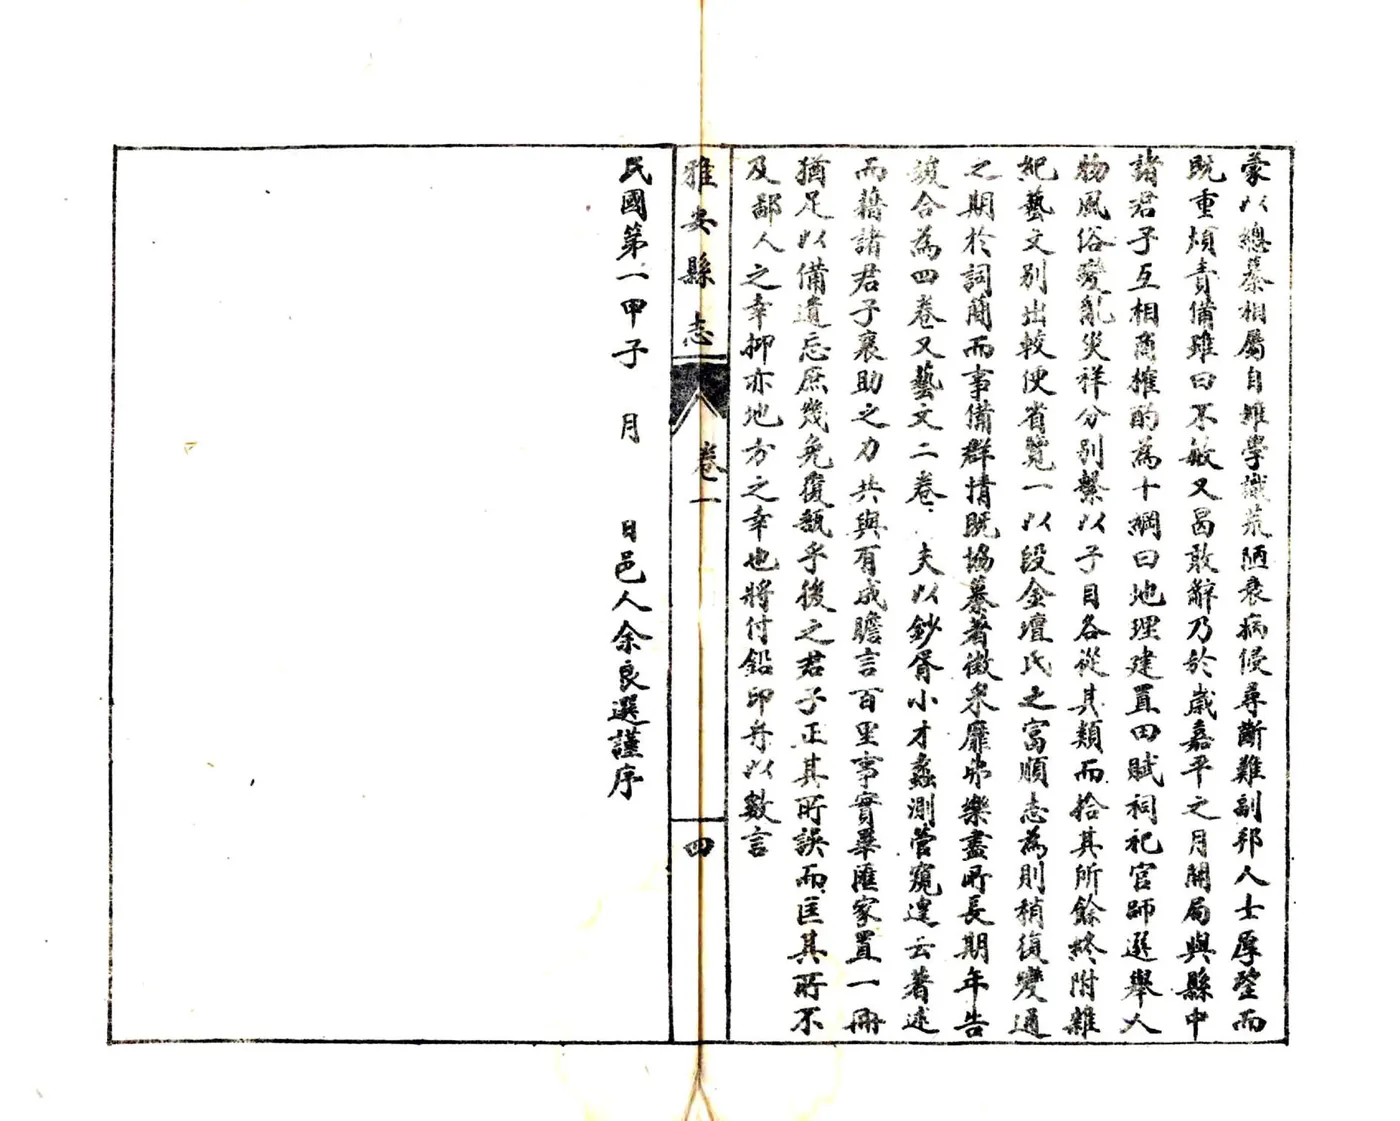 蒙以總纂相屬自維學識荒陋衰病侵尋斷難副邦人士厚望而
既重煩責備雖曰不敏又曷敢辭乃於歲嘉平之月開局與縣中
諸君子互相商榷酌為十綱曰地理建置田賦祠祀官師選舉人
物風俗變亂災祥分別繫以子目各從其類而拾其所餘終附雜
紀藝文別出較便省覽一以段金壇氏之富順志為則稍復變通
之期於詞簡而事備群情既協纂著徵求靡弗樂盡所長期年告
竣合為四卷又藝文二卷夫以鈔胥小才蠡測管窺遑云著述
而藉諸君子襄助之力共與有成贍言百里事實畢匯家置一冊
猶足以備遺忘庶幾免覆瓿乎後之君子正其所誤而匡其所不
及鄙人之幸抑亦地方之幸也將付鉛印弁以數言
雅安縣志 卷一 四
民國第一甲子 月 日邑人余良選謹序